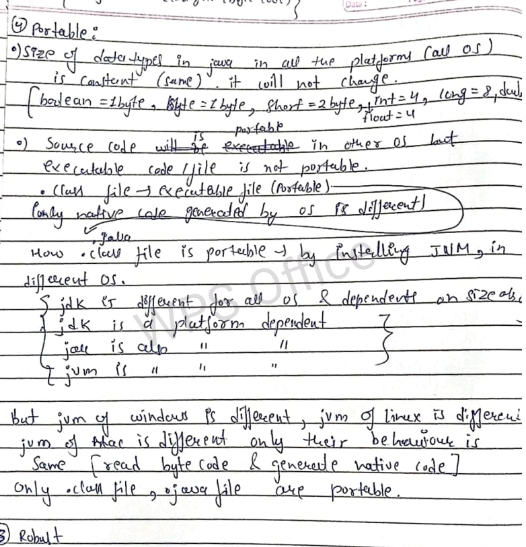 ④ Portable:
•) Size of data types in java in all the platforms (all os)
is constant (same). it will not change.
[boolean = 1byte, Byte = 1 byte, short = 2 byte, int = 4, long = 8,
float = 4
portable
•) Source code will be is executable in other os but
executable code / file is not portable.
.class file → executable file (Portable)
(only native code generated by os is different)
.java
How .class file is portable → by installing JVM, in
different os.
jdk is different for all os & dependents on size
jdk is a platform dependent
jre is also " "
jvm is " " "
WPS Office
but jvm of windows is different, jvm of linux is
jvm of Mac is different only their behaviour is
same [read byte code & generate native code]
only .class file, .java file are portable.
Robust